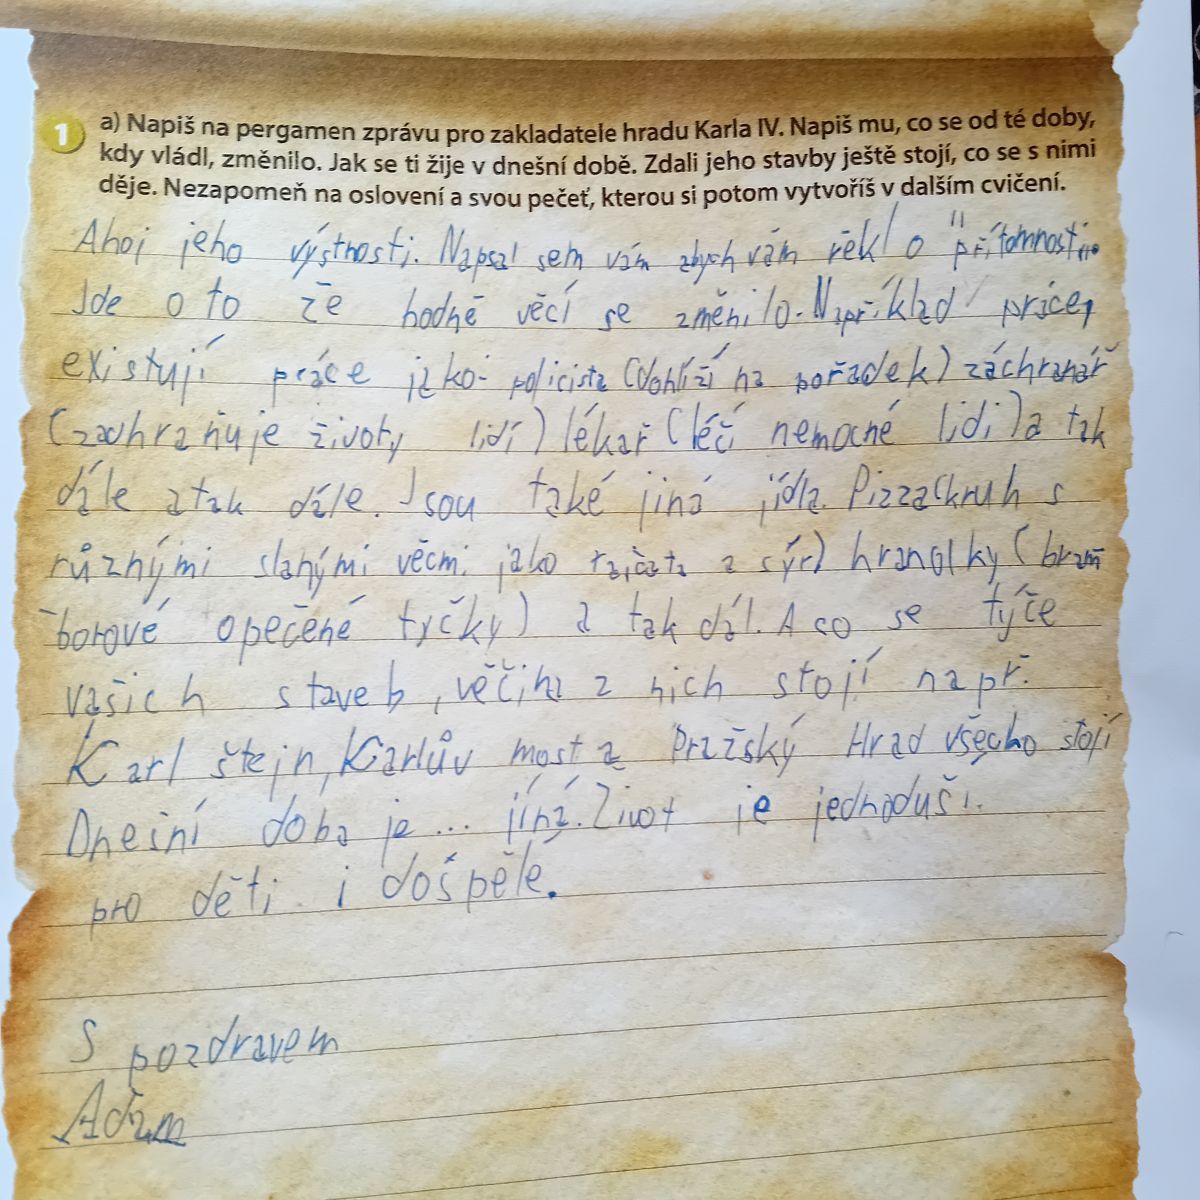 1 a) Napiš na pergamen zprávu pro zakladatele hradu Karla IV. Napiš mu, co se od té doby,
kdy vládl, změnilo. Jak se ti žije v dnešní době. Zdali jeho stavby ještě stojí, co se s nimi
děje. Nezapomeň na oslovení a svou pečeť, kterou si potom vytvoříš v dalším cvičení.
Ahoj jeho výstnosti. Napsal sem vám abych vám řekl o "přítomnosti...
Jde o to že hodně věcí se změnilo. Například práce,
existují práce jako- policista (dohlíží na pořadek) záchranář
(zachraňuje životy lidí) lékař (léčí nemocné lidi) a tak
dále a tak dále. Jsou také jiná jídla. Pizza(kruh s
různými slanými věcmi jako rajčata a sýr) hranolky (bram
borové opečené tyčky) a tak dál. A co se týče
vašich staveb, věčina z nich stojí např.
Karl štejn, Karlův most a Pražský Hrad všecho stojí
Dnešní doba je ... jíná. Život je jednoduší.
pro děti i dospělé.
S pozdravem
Adam